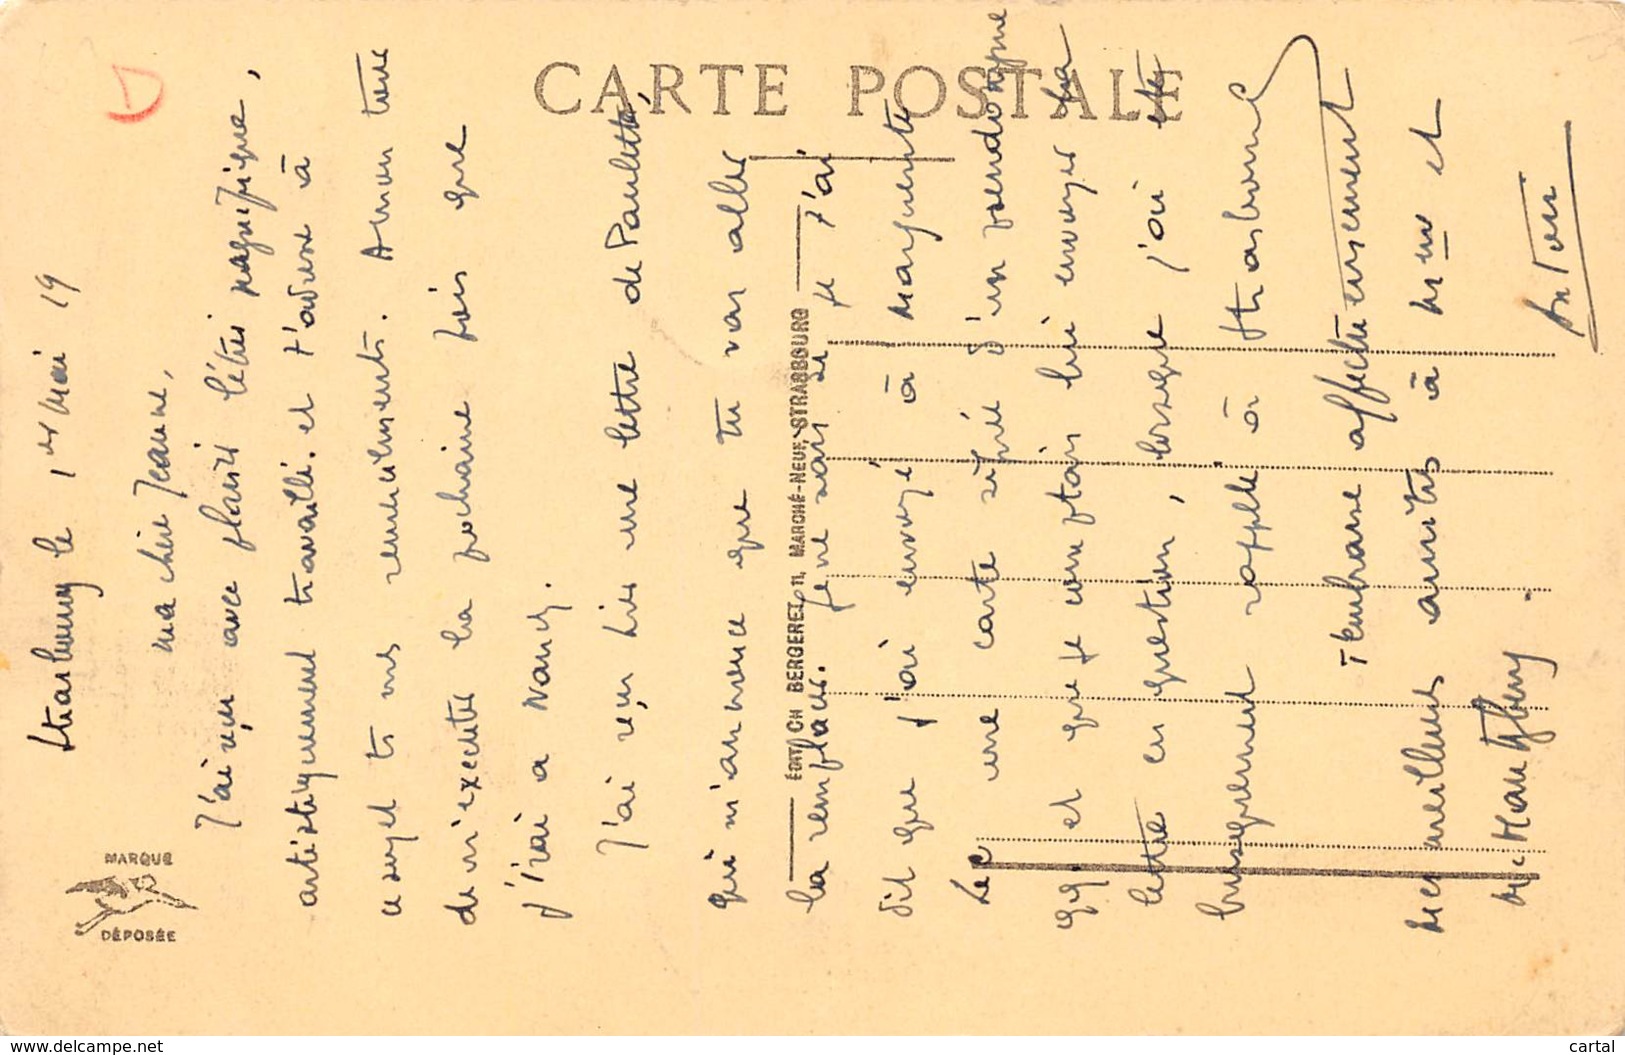 CARTE POSTALE
MARQUE
DÉPOSÉE
EDIT. CH BERGERET, 11, MARCHÉ-NEUF, STRASBOURG
Strasbourg le 1er Mai 19
ma chère Jeanne,
J'ai reçu avec plaisir l'étui magnifique,
artistiquement travaillé. et t'adresse à
ce sujet ts mes remerciments. A mon tour
de m'exécuter la prochaine fois que
j'irai a Nancy.
J'ai reçu hier une lettre de Paulette,
qui m'annonce que tu vas aller
la remplacer. je ne sais si je t'ai
dit que j'ai envoyé à Marguerite
Lec une carte signée d'un pseudonyme
qq. et que je comptais lui envoyer la
lettre en question, lorsque j'ai été
brusquement rappelé à Strasbourg
T'embrasse affectueusement
Mes meilleures amitiés à Mme et